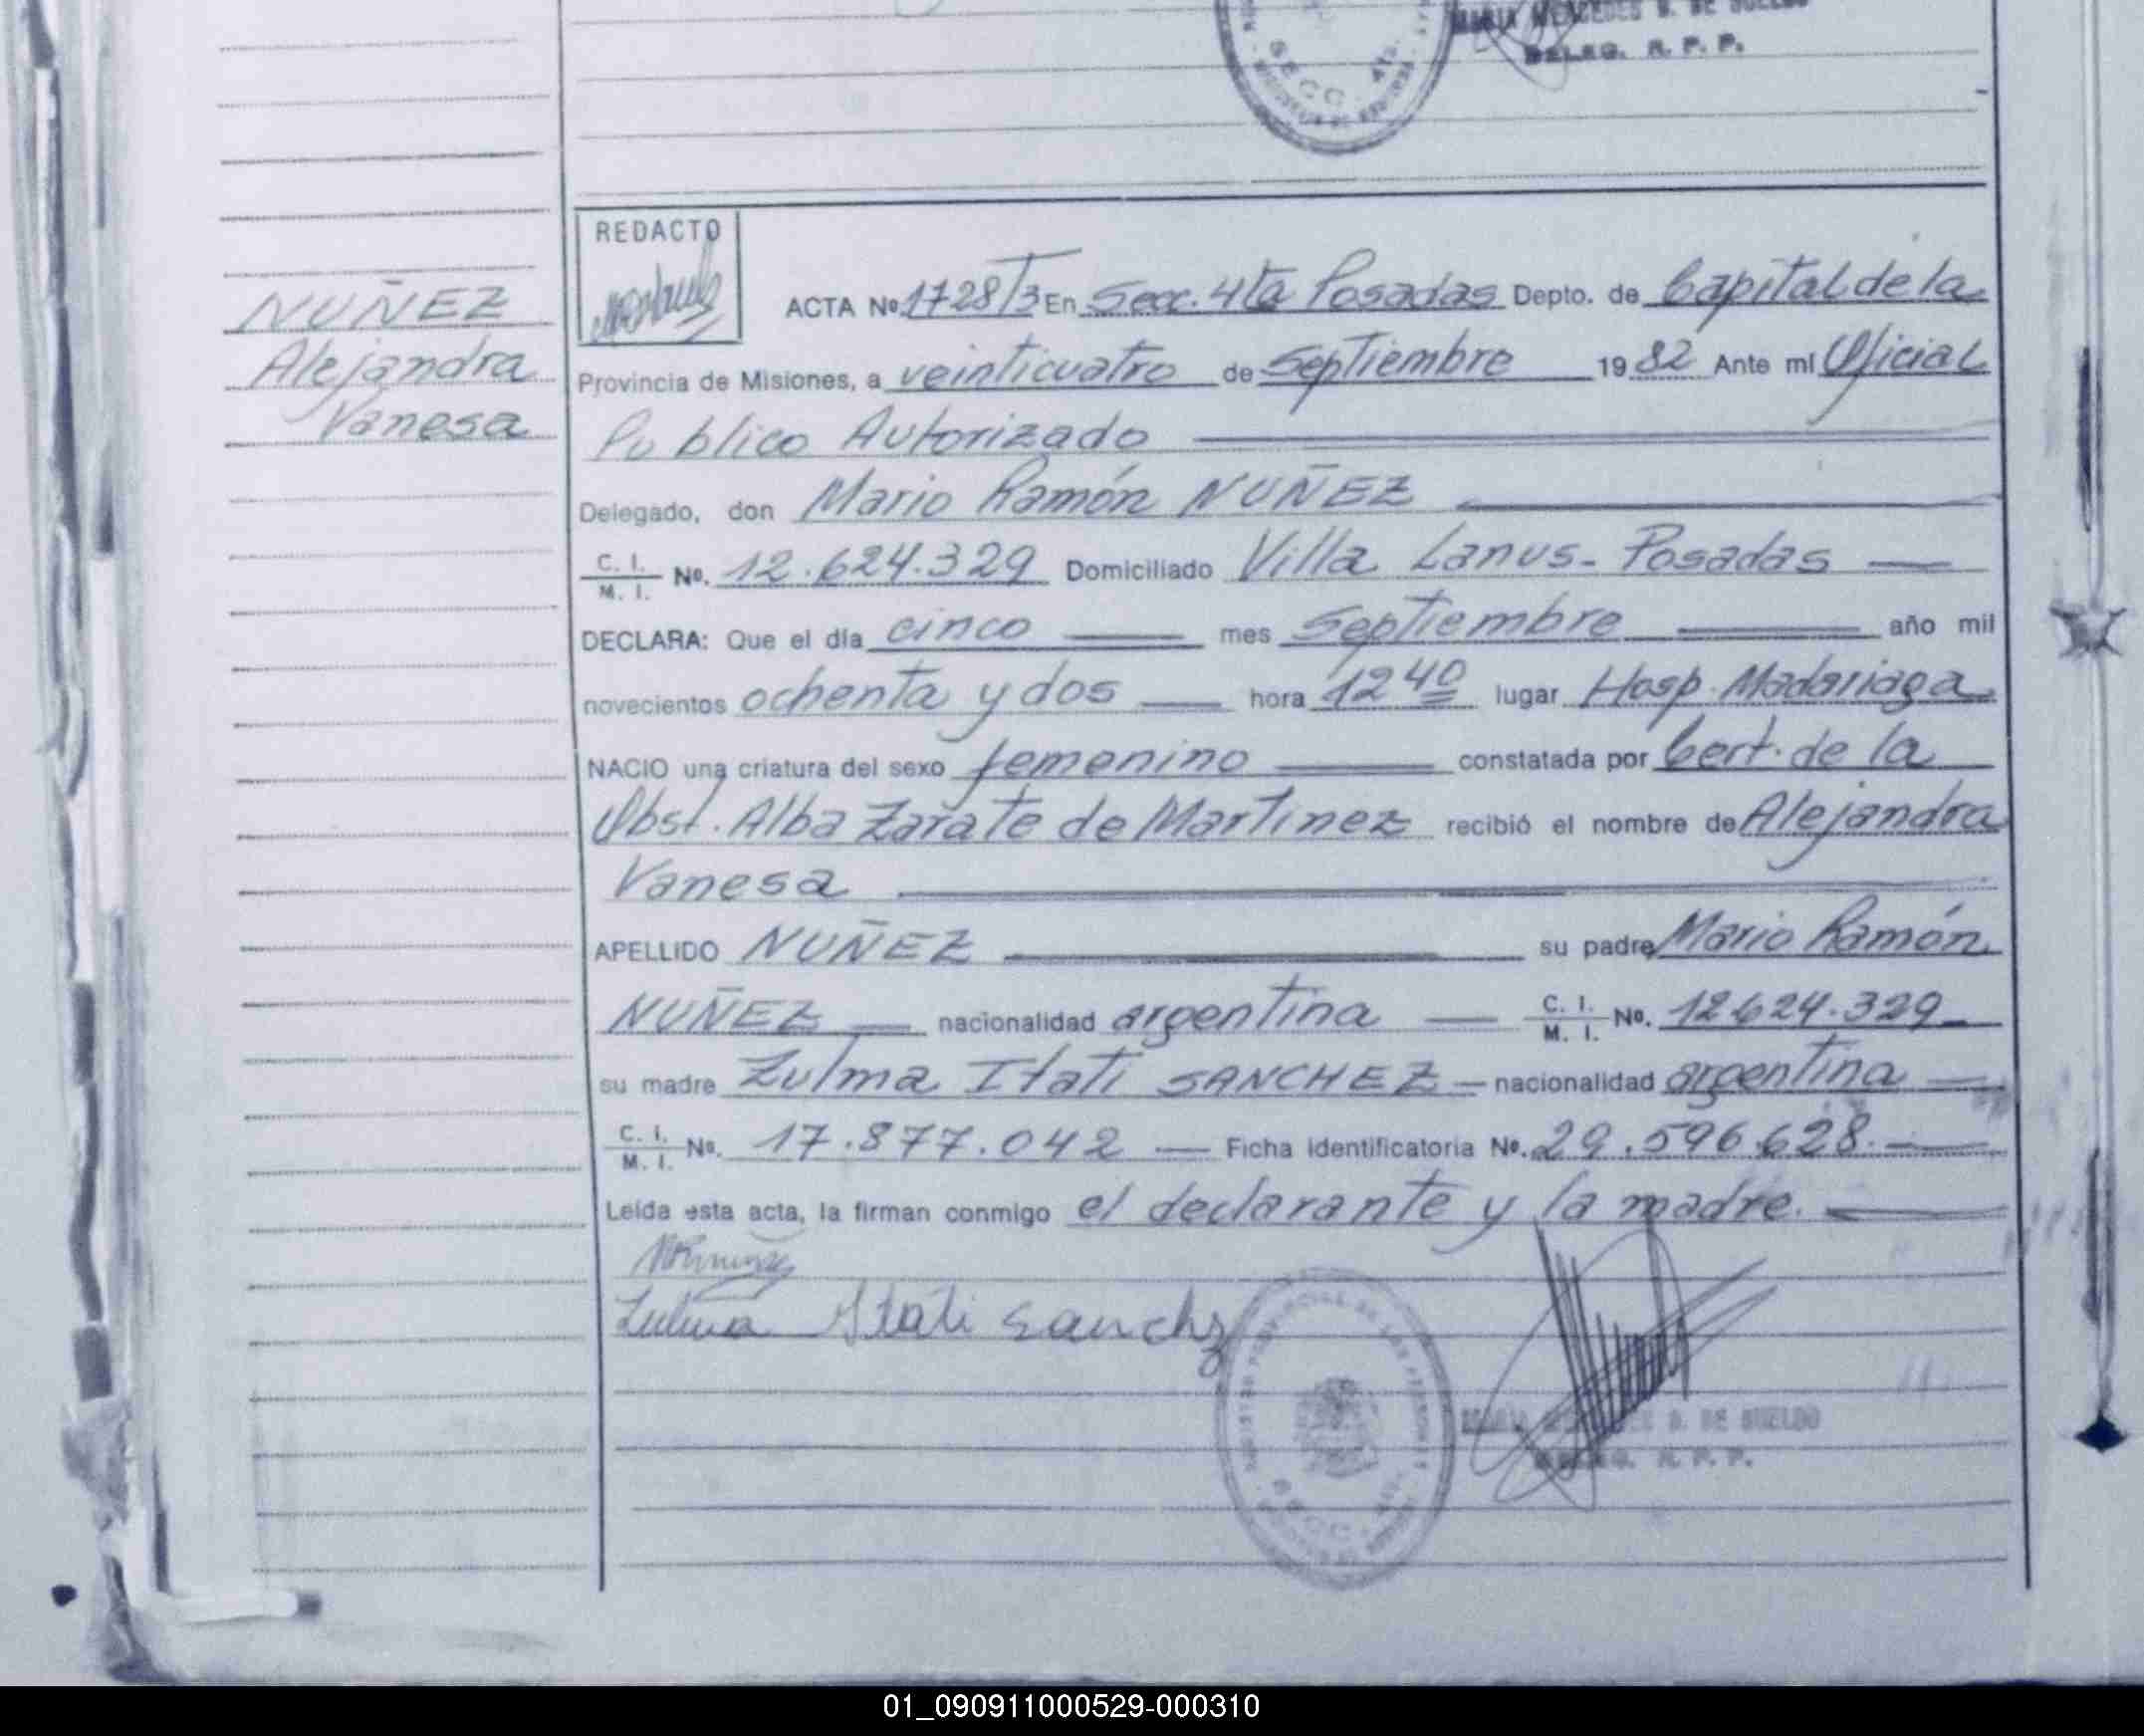 MARIA MERCEDES D. DE SUELDO
DELEG. R. P. P.
SECC. 4TA.
NUÑEZ
Alejandra
Vanesa
REDACTO
ACTA No 1728/T3 En Secc. 4ta Posadas Depto. de Capital de la
Provincia de Misiones, a veinticuatro de Septiembre 1982 Ante mí Oficial
Publico Autorizado
Delegado, don Mario Ramón NUÑEZ
C. I.
M. I. No. 12.624.329 Domiciliado Villa Lanus - Posadas
DECLARA: Que el día cinco mes Septiembre año mil
novecientos ochenta y dos hora 12 40 lugar Hosp. Madariaga
NACIO una criatura del sexo femenino constatada por Cert. de la
Obst. Alba Zarate de Martinez recibió el nombre de Alejandra
Vanesa
APELLIDO NUÑEZ su padre Mario Ramón
NUÑEZ nacionalidad argentina C. I. M. I. No. 12.624.329
su madre Zulma Itati SANCHEZ nacionalidad argentina
C. I.
M. I. No. 17.877.042 Ficha identificatoria No. 29.596.628.
Leída esta acta, la firman conmigo el declarante y la madre.
Zulma Itati Sanchz
REGISTRO PROVINCIAL DE LAS PERSONAS
SECC. 4TA.
MARIA MERCEDES D. DE SUELDO
DELEG. R. P. P.
01_090911000529-000310